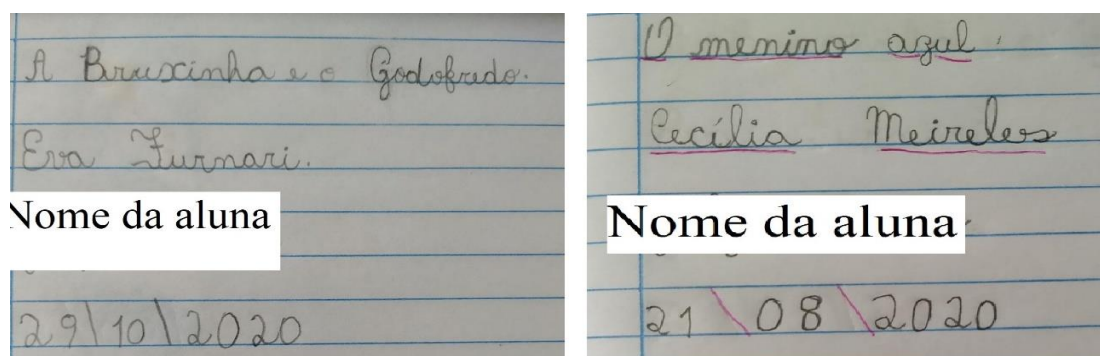 A Bruxinha e o Godofredo.
Eva Furnari.
Nome da aluna
29\10\2020
O menino azul.
Cecília Meireles
Nome da aluna
21\08\2020